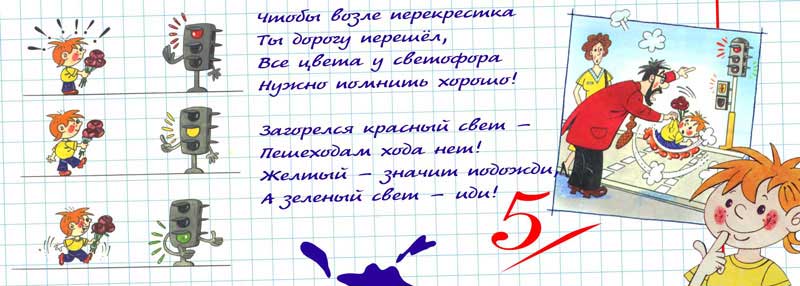 Чтобы возле перекрестка
Ты дорогу перешёл,
Все цвета у светофора
Нужно помнить хорошо!
Загорелся красный свет –
Пешеходам хода нет!
Желтый – значит подожди,
А зеленый свет – иди!
5